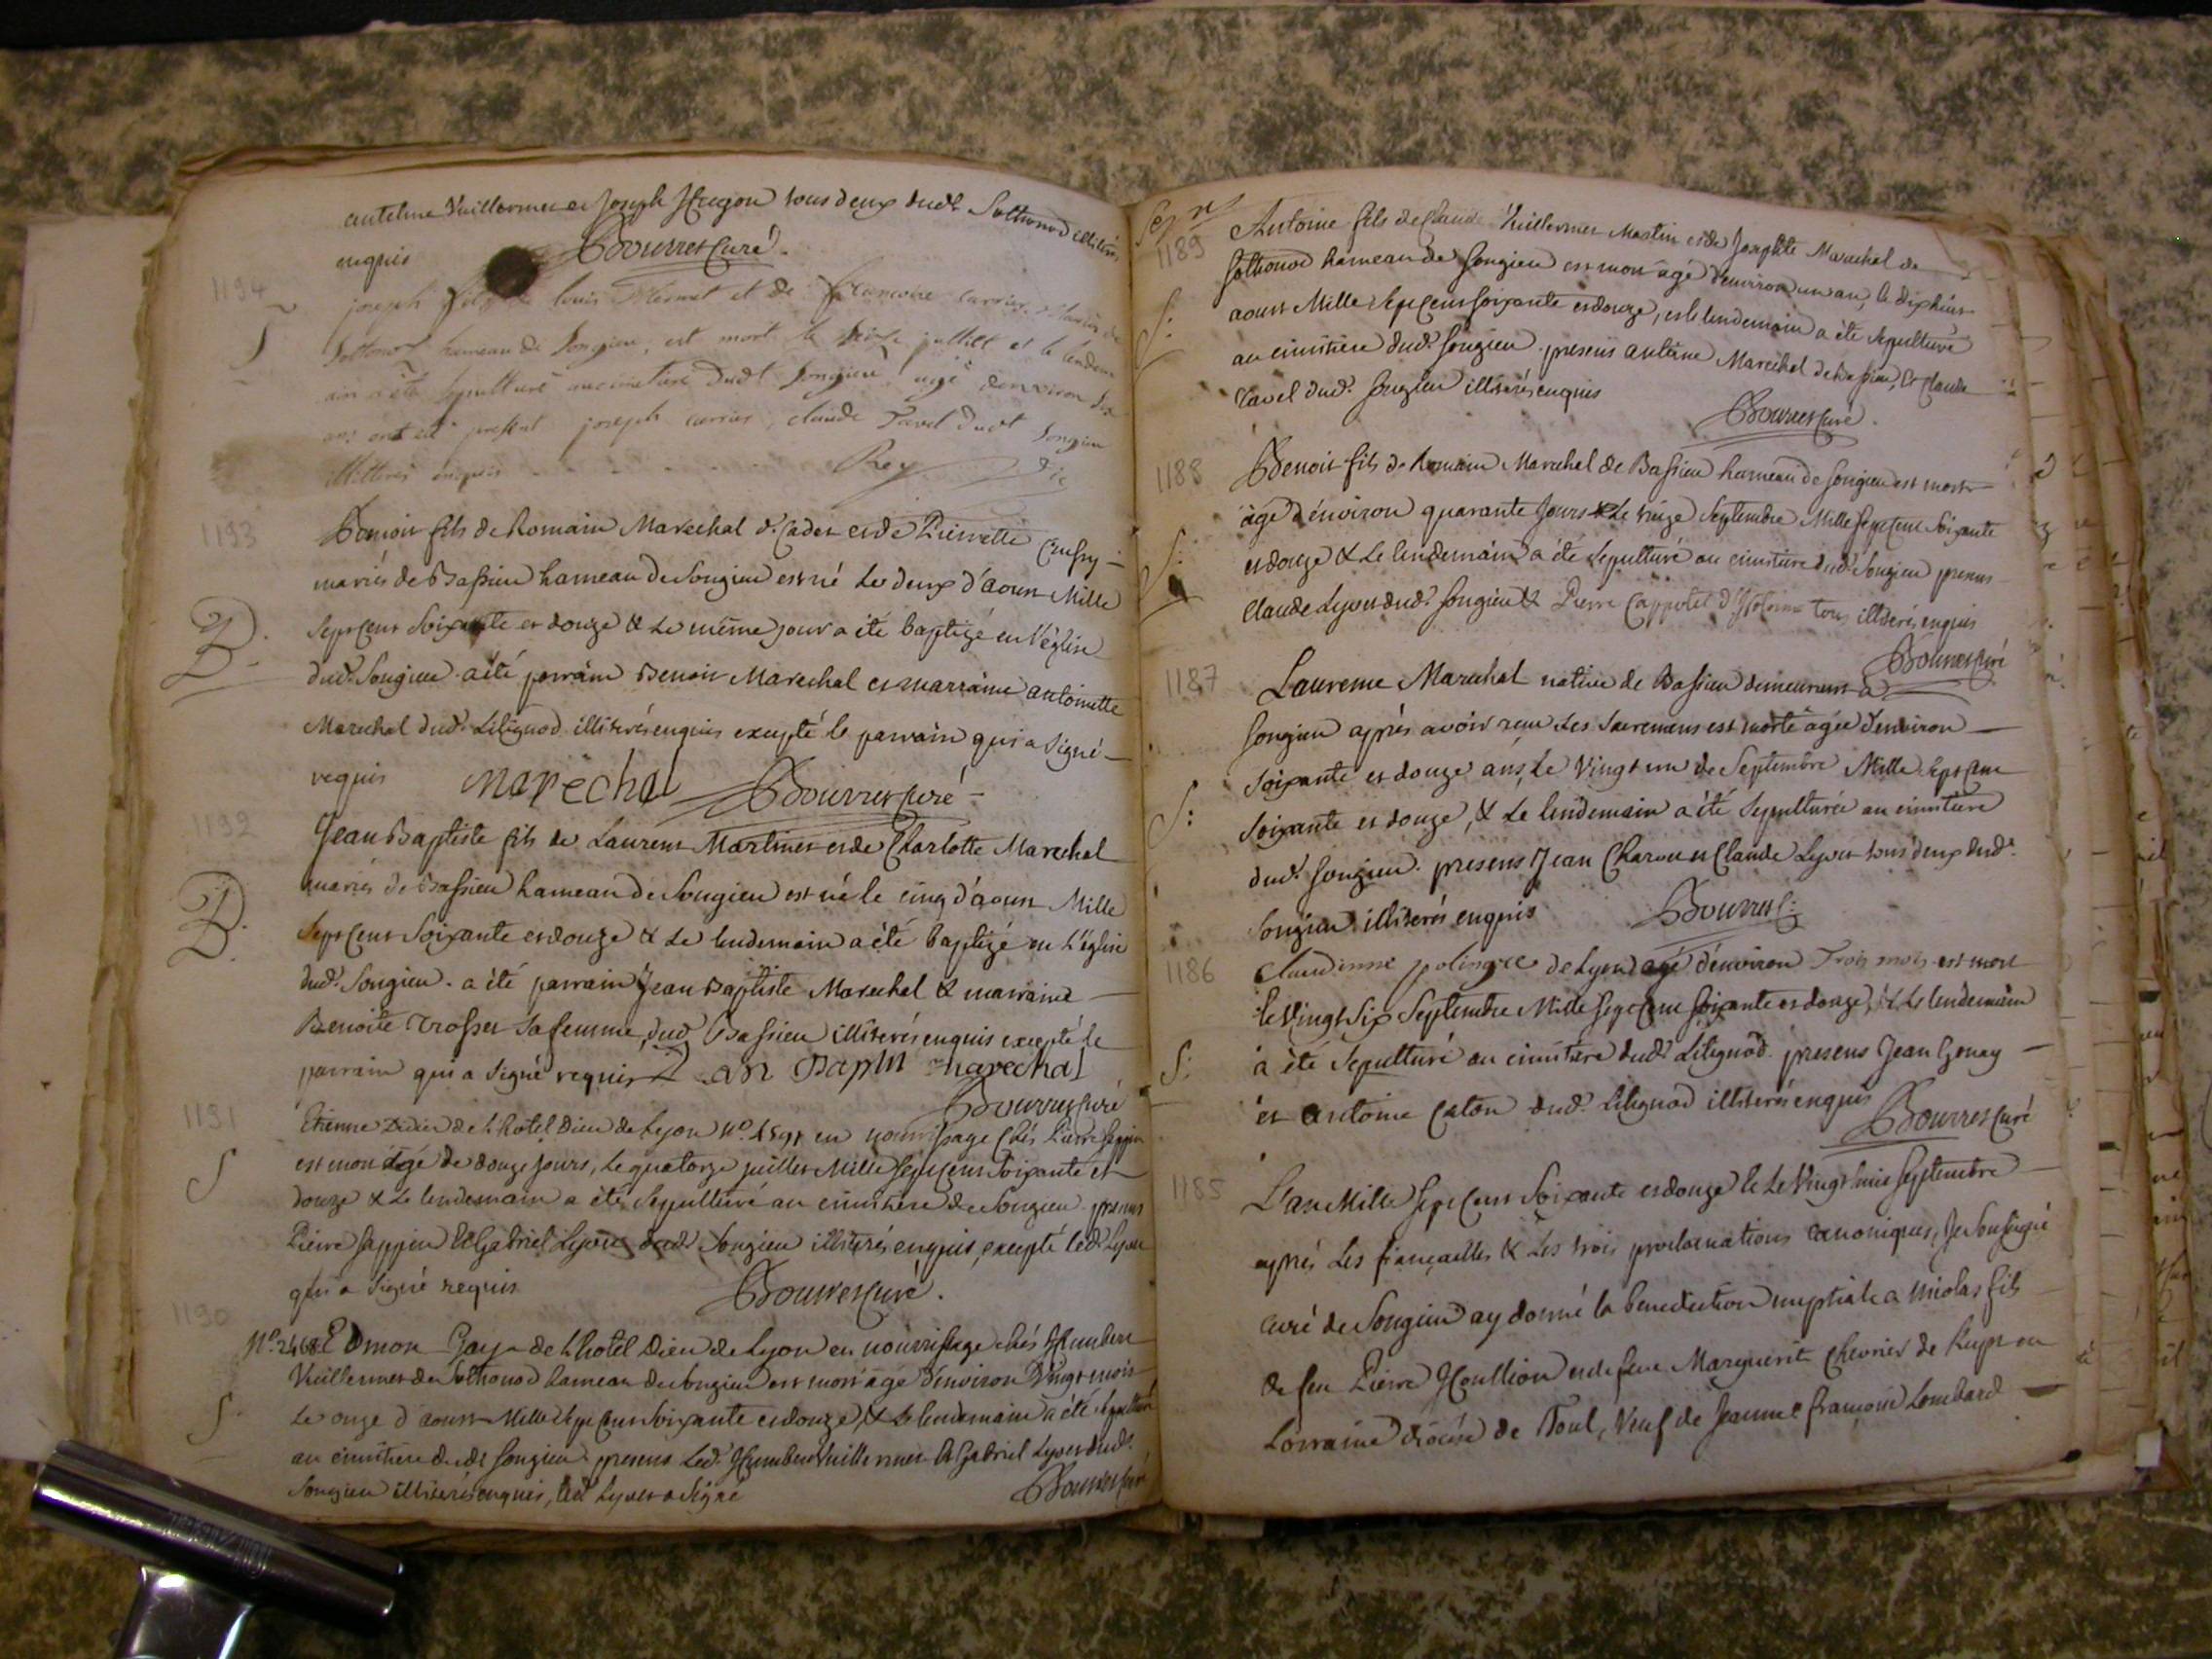 anteline Vuillermet et Joseph Hugon tous deux dud.t Sothonod illiterés
enquis Bourret Curé.
1194
joseph fils de louis Mermet et de francoise carrier mariés de
S
Sottonod hameau de Songieu, est mort le seize juillet et le lendem
ain a été sepulturé au cimetiere dudt Songieu agé denviron six
ans ont été present joseph carrier, claude Tavel dudt Songieu
illitteres enquis Rey vic
1193
Benoit fils de Romain Marechal d. Cadet et de Pierrette Cusny
mariés de Bassieu hameau de Songieu est né Le deux d'aoust Mille
B.
Sept Cent Soixante et douze & Le même jour a été baptizé en l'église
dud. Songieu. a été parrain Benoit Marechal et marraine antoinette
Marechal dud. Lilignod illiterés enquis excepté le parrain qui a Signé
requis marechal Bourret Curé
1192
Jean Baptiste fils de Laurent Martinet et de Charlotte Marechal
mariés de Bassieu hameau de Songieu est né le cinq d'aoust Mille
B.
Sept Cent Soixante et douze & Le lendemain a été baptizé en L'église
dud. Songieu. a été parrain Jean Baptiste Marechal & marraine
Benoite Trosset Sa femme, dud. Bassieu illiterés enquis excepté le
parrain qui a Signé requis Jan Baptit marechal
Bourret Curé
1191
Etienne Didier de L'hotel Dieu de Lyon N.o en nourrissage chés Pierre Sappin
S
est mort agé de douze jours, Le quatorze juillet Mille Sept Cent Soixante et
douze & Le lendemain a été Sepulturé au cimitiere de Songieu. presens
Pierre Sappin & Gabriel Lyvet dud. Songieu illiterés enquis, excepté led. Lyvet
qui a Signé requis Bourret Curé.
1190
N.o 2468 Edmon Gay de L'hotel Dieu de Lyon en nourrissage chés Humbert
Vuillermet de Sothonod hameau de Songieu est mort agé d'environ Vingt mois
S.
Le onze d'aoust Mille Sept Cent Soixante et douze, & Le lendemain a été Sepulturé
au cimitiere dudt Songieu. presens Led. Humbert Vuillermet & Gabriel Lyvet dud.
Songieu illiterés enquis, led Lyvet a Signé Bourret Curé
1189
Antoine fils de Claude Vuillermet Martin et de Josephte Marechal de
Sothonod hameau de Songieu est mort agé d'environ un an, le dixhuit
S.
aoust Mille Sept Cent Soixante et douze, et le lendemain a été Sepulturé
au cimitiere dud. Songieu. presens anteline Marechal de Bassieu, & Claude
Tavel dud. Songieu illiterés enquis
Bourret Curé.
1188
Benoit fils de Romain Marechal de Bassieu hameau de Songieu est mort
agé d'environ quarante Jours Le treize Septembre Mille Sept Cent Soixante
S.
et douze & Le lendemain a été Sepulturé au cimitiere dud. Songieu presens
Claude Lyvet dud. Songieu & Pierre Cappotet d'Hotonne tous illiterés enquis
Bourret Curé
1187
Laurence Marechal native de Bassieu demeurant a
Songieu aprés avoir recu Les Sacremens est morte agée d'environ
S:
Soixante et douze ans, Le Vingt un de Septembre Mille Sept Cent
Soixante et douze, & Le lendemain a été Sepulturée au cimitiere
dud. Songieu. presens Jean Charvet et Claude Lyvet tous deux dud.
Songieu illiterés enquis Bourret C.
1186
Claudinne polingue de Lyon agé d'environ Trois mois est mort
le Vingt Six Septembre Mille Sept Cent Soixante et douze, & Le lendemain
S:
a été Sepulturé au cimitiere dud. Lilignod. presens Jean Genay
et Antoine Caton dud. Lilignod illiterés enquis
Bourret Curé
1185
L'an Mille Sept Cent Soixante et douze le Le Vingt huit Septembre
aprés Les fiançailles & Les trois proclamations canoniques, Je Soussigné
curé de Songieu ay donné la benediction nuptiale a Nicolas fils
de feu Pierre Houillion et de feue Marguerit Chevrier de Rupt en
Lorraine diocése de Toul, Veuf de Jeanne françoise Lombard